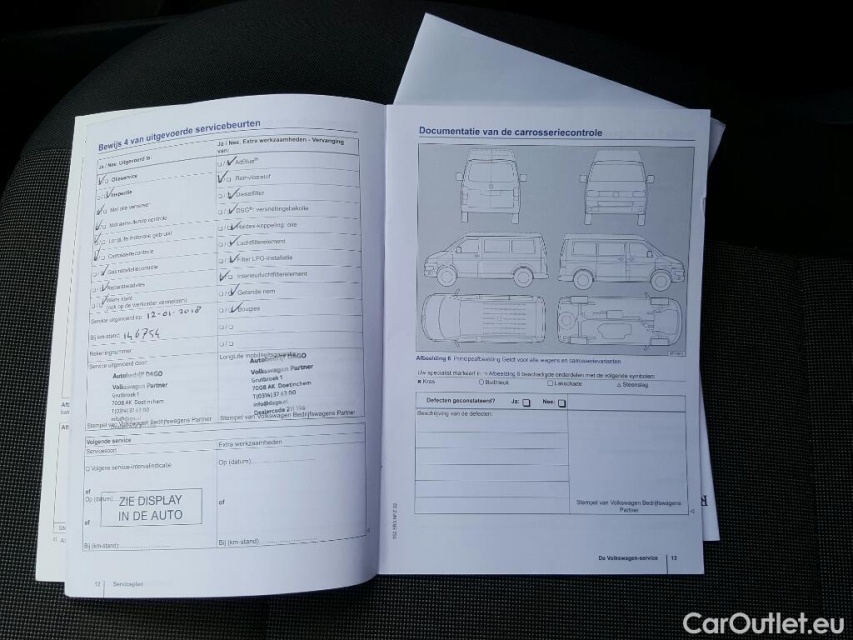 Bewijs 4 van uitgevoerde servicebeurten
Ja / Nee, Uitgevoerd is:
Olieservice
Inspectie
Carrosseriecontrole
Service uitgevoerd op 12-01-2018
Bij km-stand: 146754
Rekeningnummer
Service uitgevoerd door
Autobedrijf DAGO
Volkswagen Partner
Grutbroek 1
7008 AK Doetinchem
Stempel van Volkswagen Bedrijfswagens Partner
Volgende service
Servicesoort
Volgens service-intervalindicatie
of
Op (datum)
ZIE DISPLAY
IN DE AUTO
of
Bij (km-stand)
12 Serviceplan
Ja / Nee, Extra werkzaamheden - Vervanging
van:
AdBlue®
Remvloeistof
Dieselfilter
DSG®- versnellingsbakolie
Luchtfilterelement
Filter LPG-installatie
Interieurluchtfilterelement
Getande riem
Bougies
LongLife mobiliteitsgarantie
Autobedrijf DAGO
Volkswagen Partner
Grutbroek 1
7008 AK Doetinchem
Stempel van Volkswagen Bedrijfswagens Partner
Extra werkzaamheden
Op (datum)
of
Bij (km-stand)
Documentatie van de carrosseriecontrole
Afbeelding 6 Principeafbeelding: Geldt voor alle wagens en carrosserievarianten
Uw specialist markeert in Afbeelding 6 beschadigde onderdelen met de volgende symbolen:
Kras
Steenslag
Defecten geconstateerd? Ja: Nee:
Beschrijving van de defecten:
Stempel van Volkswagen Bedrijfswagens
Partner
De Volkswagen-service 13
CarOutlet.eu